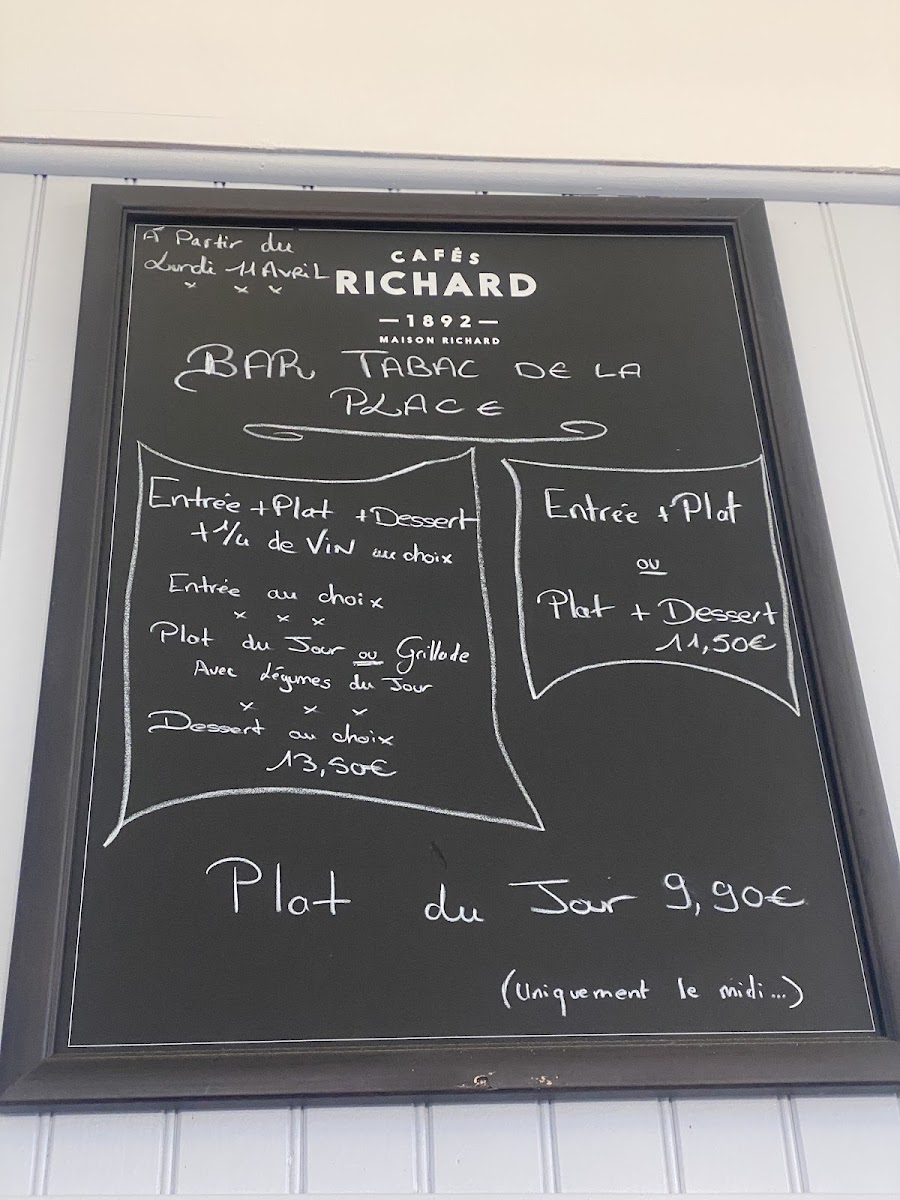 À Partir du
Lundi 11 AVRIL
x x x
CAFÉS
RICHARD
—1892—
MAISON RICHARD
BAR TABAC DE LA
PLACE
Entrée + Plat + Dessert
+ 1/4 de VIN au choix
Entrée au choix
x x x
Plat du Jour ou Grillade
Avec Légumes du Jour
x x x
Dessert au choix
13,50€
Entrée + Plat
ou
Plat + Dessert
11,50€
Plat du Jour 9,90€
(Uniquement le midi...)